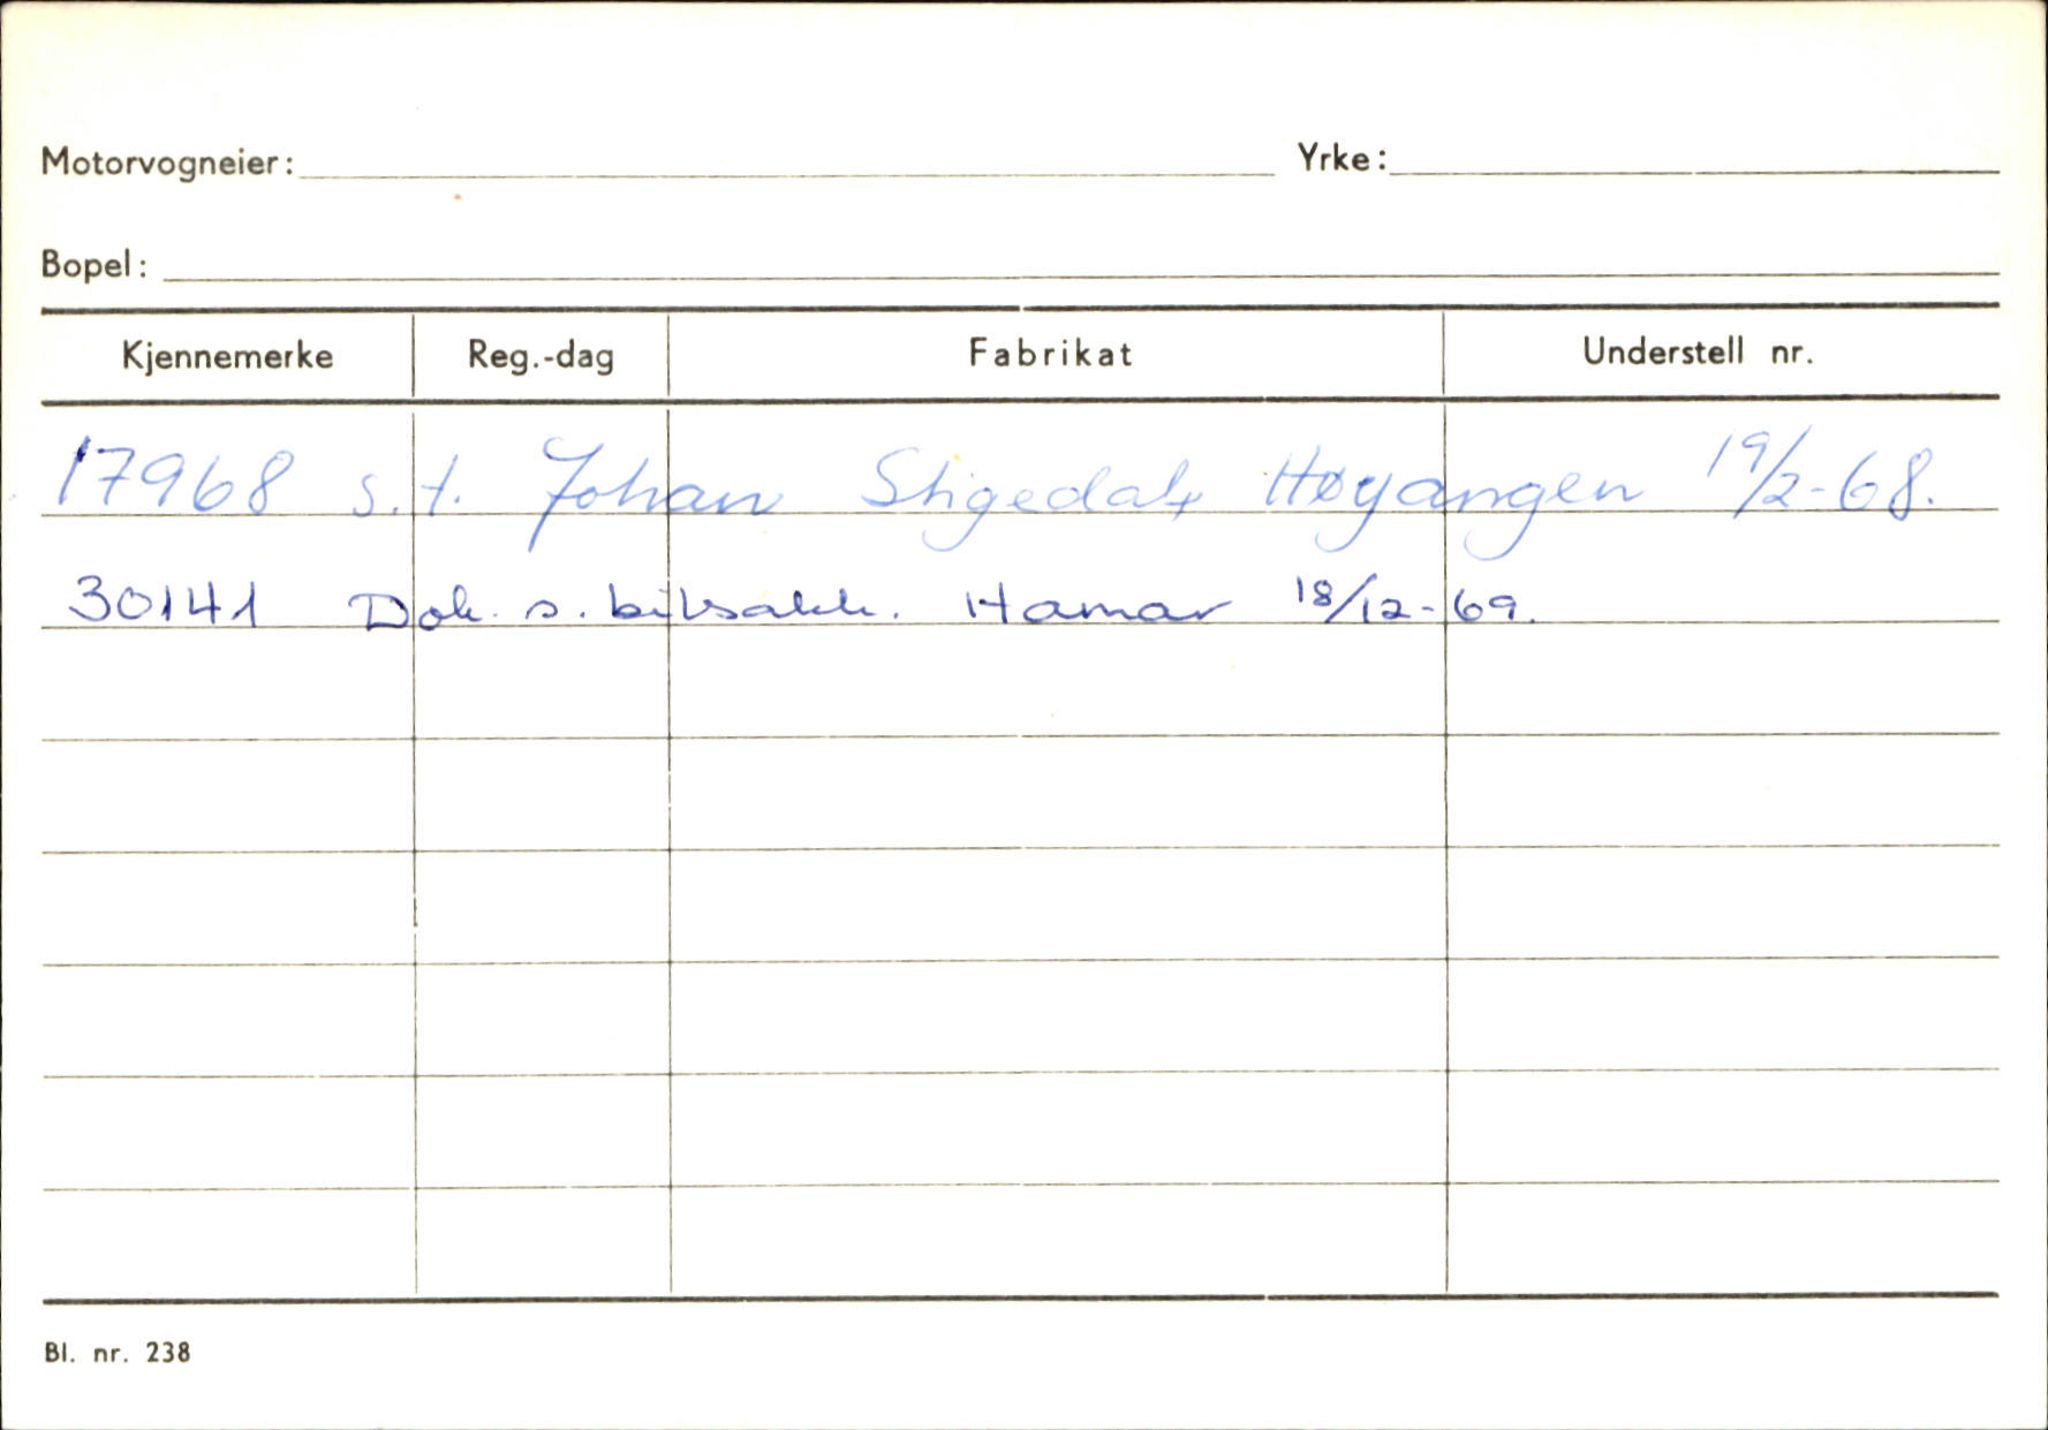 Motorvogneier: Yrke:
Bopel:
Kjennemerke Reg.-dag Fabrikat Understell nr.
17968 s.t. Johan Stigedal, Høyangen 19/2-68.
30141 Dok. s. bilsakk. Hamar 18/12-69.
Bl. nr. 238